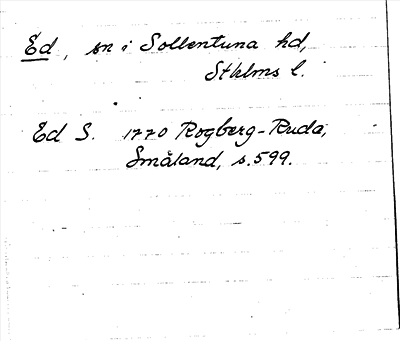 Ed, sn i Sollentuna hd,
Sthlms l.
Ed S. 1770 Rogberg-Ruda,
Småland, s.599.